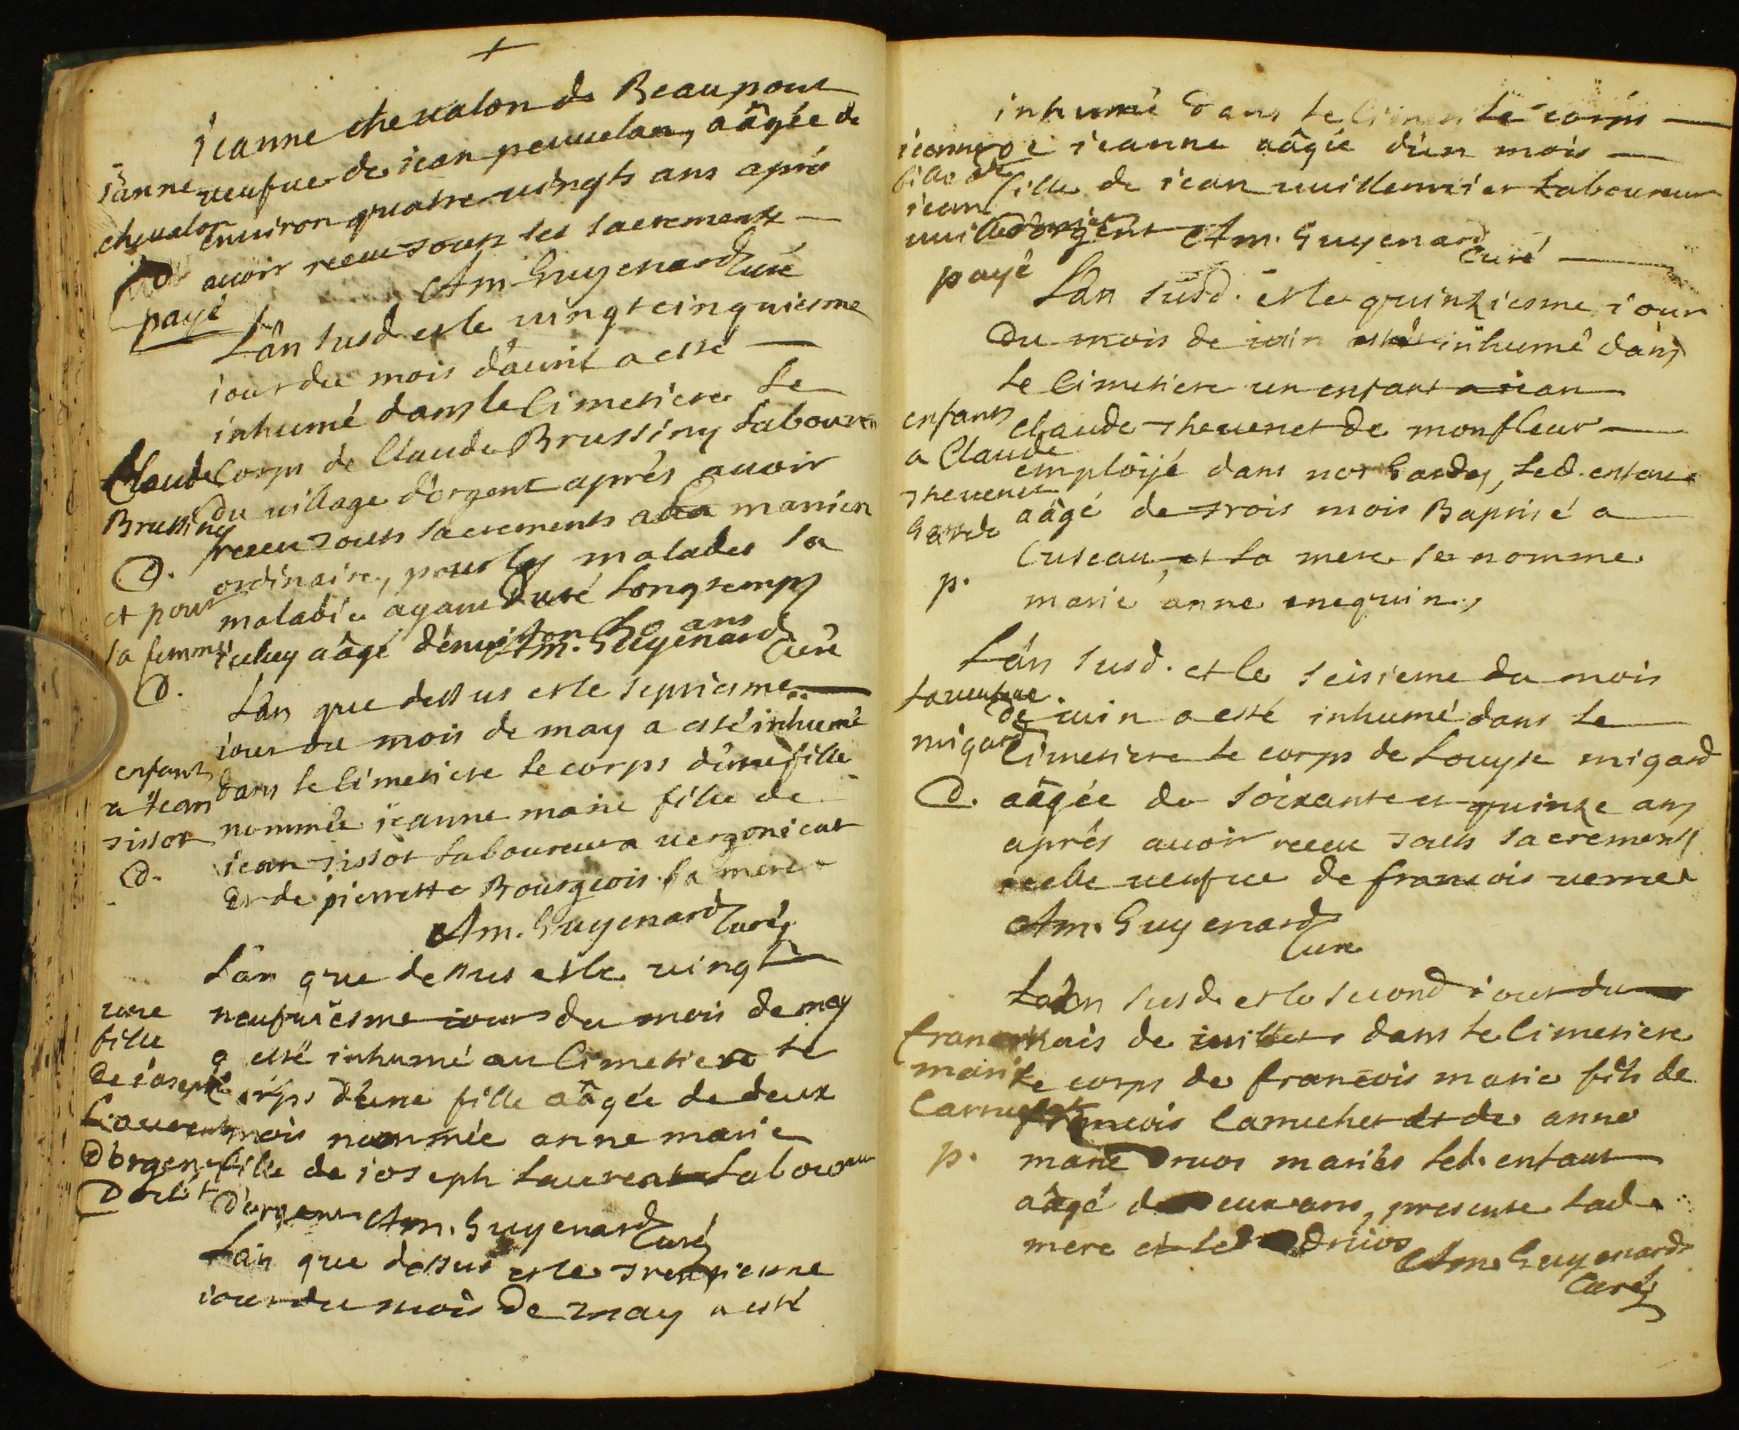 jeanne chevalon de Beaupont
veufve de jean peuuelan, aâgée de
environ quatre vingts ans aprés
avoir receu tous les sacrements
Am. Guyenard Curé
janne
chevalon
D
payé
Lân susd. et le vingt cinquiesme
jour du mois d'avril a esté
inhumé dans le Cimetiere le
Corps de Claude Brussiny Laboureur
du village d'orgent aprés avoir
receu tous sacrements a la maniere
ordinaire, pour les malades sa
maladie ayant duré Longtemps
iceluy aâgé d'environ ans
Am. Guyenard Curé
Claude
Brussiny
D.
et pour
sa femme
D.
Lân que dessus et le septiesme
jour du mois de may a esté inhumé
dans le Cimetiere le corps d'une fille
nommée jeanne marie fille de
jean tissot Laboureur a vergonicat
et de pierrette Bourgeois sa mere
Am. Guyenard Curé
enfant
a jean
tissot
D.
Lân que dessus et le vingt
neufviesme jour du mois de may
a esté inhumé au Cimetiere le
corps d'une fille aâgée de deux
mois nommée anne marie
fille de joseph Laurent Laboureur
d'orgent Am. Guyenard Curé
une
fille
de joseph
Laurent
d'orgent
D
Lân que dessus et le trentiesme
jour du mois de may a esté
inhumé dans le Cimetiere le corps
de jeanne aâgée d'un mois
fille de jean vuillermier Laboureur
d'orgent Am. Guyenard Curé
jeanne
fille de
jean
payé
Lân susd. et le quinziesme jour
du mois de juin esté inhumé dans
le Cimetiere un enfant a jean
claude thevenet de monfleur
emploijé dans nos Gardes, led. enfant
aâgé de trois mois Baptisé a
Cuseau, et sa mere se nomme
marie anne enequin,
enfant
a Claude
thevenet
Garde
p.
Lân susd. et le seisieme du mois
de juin a esté inhumé dans le
Cimetiere le corps de Louyse migard
aâgée de soixante et quinze ans
aprés avoir receu tous sacrements
icelle veufve de francois vernes
Am. Guyenard
Curé
La veufve
migard
D.
Lân susd. et le second jour du
mois de juillet dans le Cimetiere
le corps de francois marie fils de
francois Carruchet et de anne
marie Druos mariés led. enfant
aâgé de deux ans, presente lad.
mere et led. druos
Am. Guyenard
Curé
francois
marie
Carruchet
p.